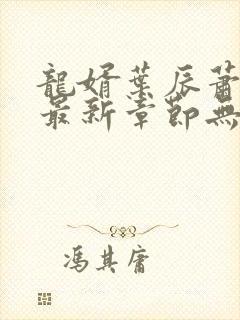 龍婿葉辰蕭
最新章節無
馮其庸